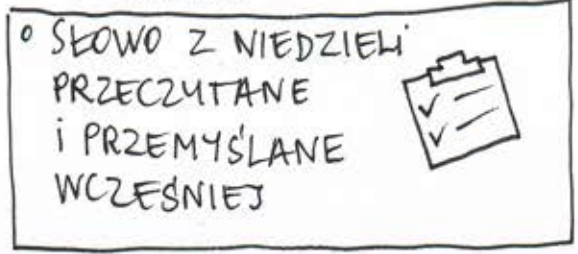 ° SŁOWO Z NIEDZIELI
PRZECZYTANE
i PRZEMYŚLANE
WCZEŚNIEJ